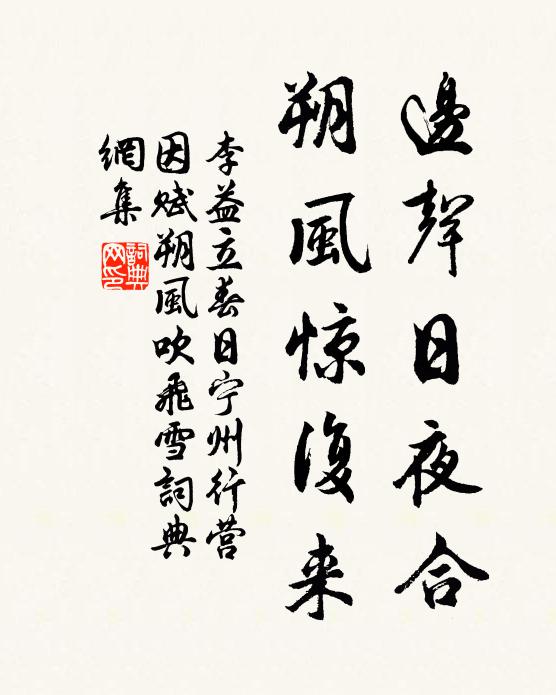 邊聲日夜合
朔風惊復来
李益立春日宁州行营
因赋朔風吹飛雪詞典
網集
詞典
网印